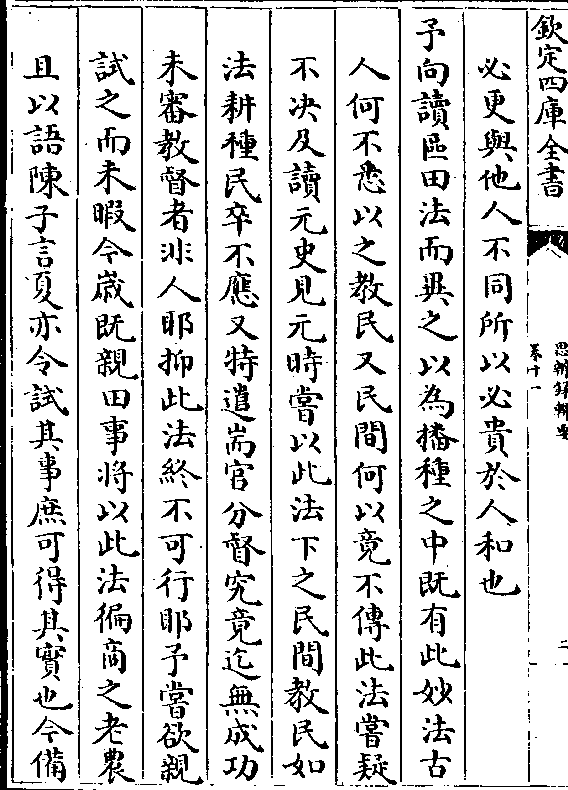 欽定四庫全書
思辨録輯要
卷十一
二
必更與他人不同所以必貴於人和也
予向讀區田法而異之以為播種之中既有此妙法古
人何不悉以之教民又民間何以竟不傳此法嘗疑
不决及讀元史見元時嘗以此法下之民間教民如
法耕種民卒不應又特遣耑官分督究竟迄無成功
未審教督者非人耶抑此法終不可行耶予嘗欲親
試之而未暇今歳既親田事将以此法徧商之老農
且以語陳子言夏亦令試其事庶可得其實也今備